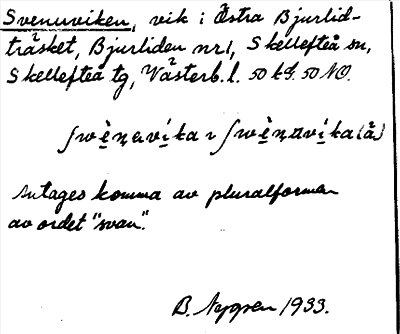 Svenuviken, vik i Östra Bjurlid-
träsket, Bjurliden nr 1, Skellefteå sn,
Skellefteå tg, Västerb. l. 50 kG. 50 NO.
Antages komma av pluralformen
av ordet "svan".
B. Nygren 1933.